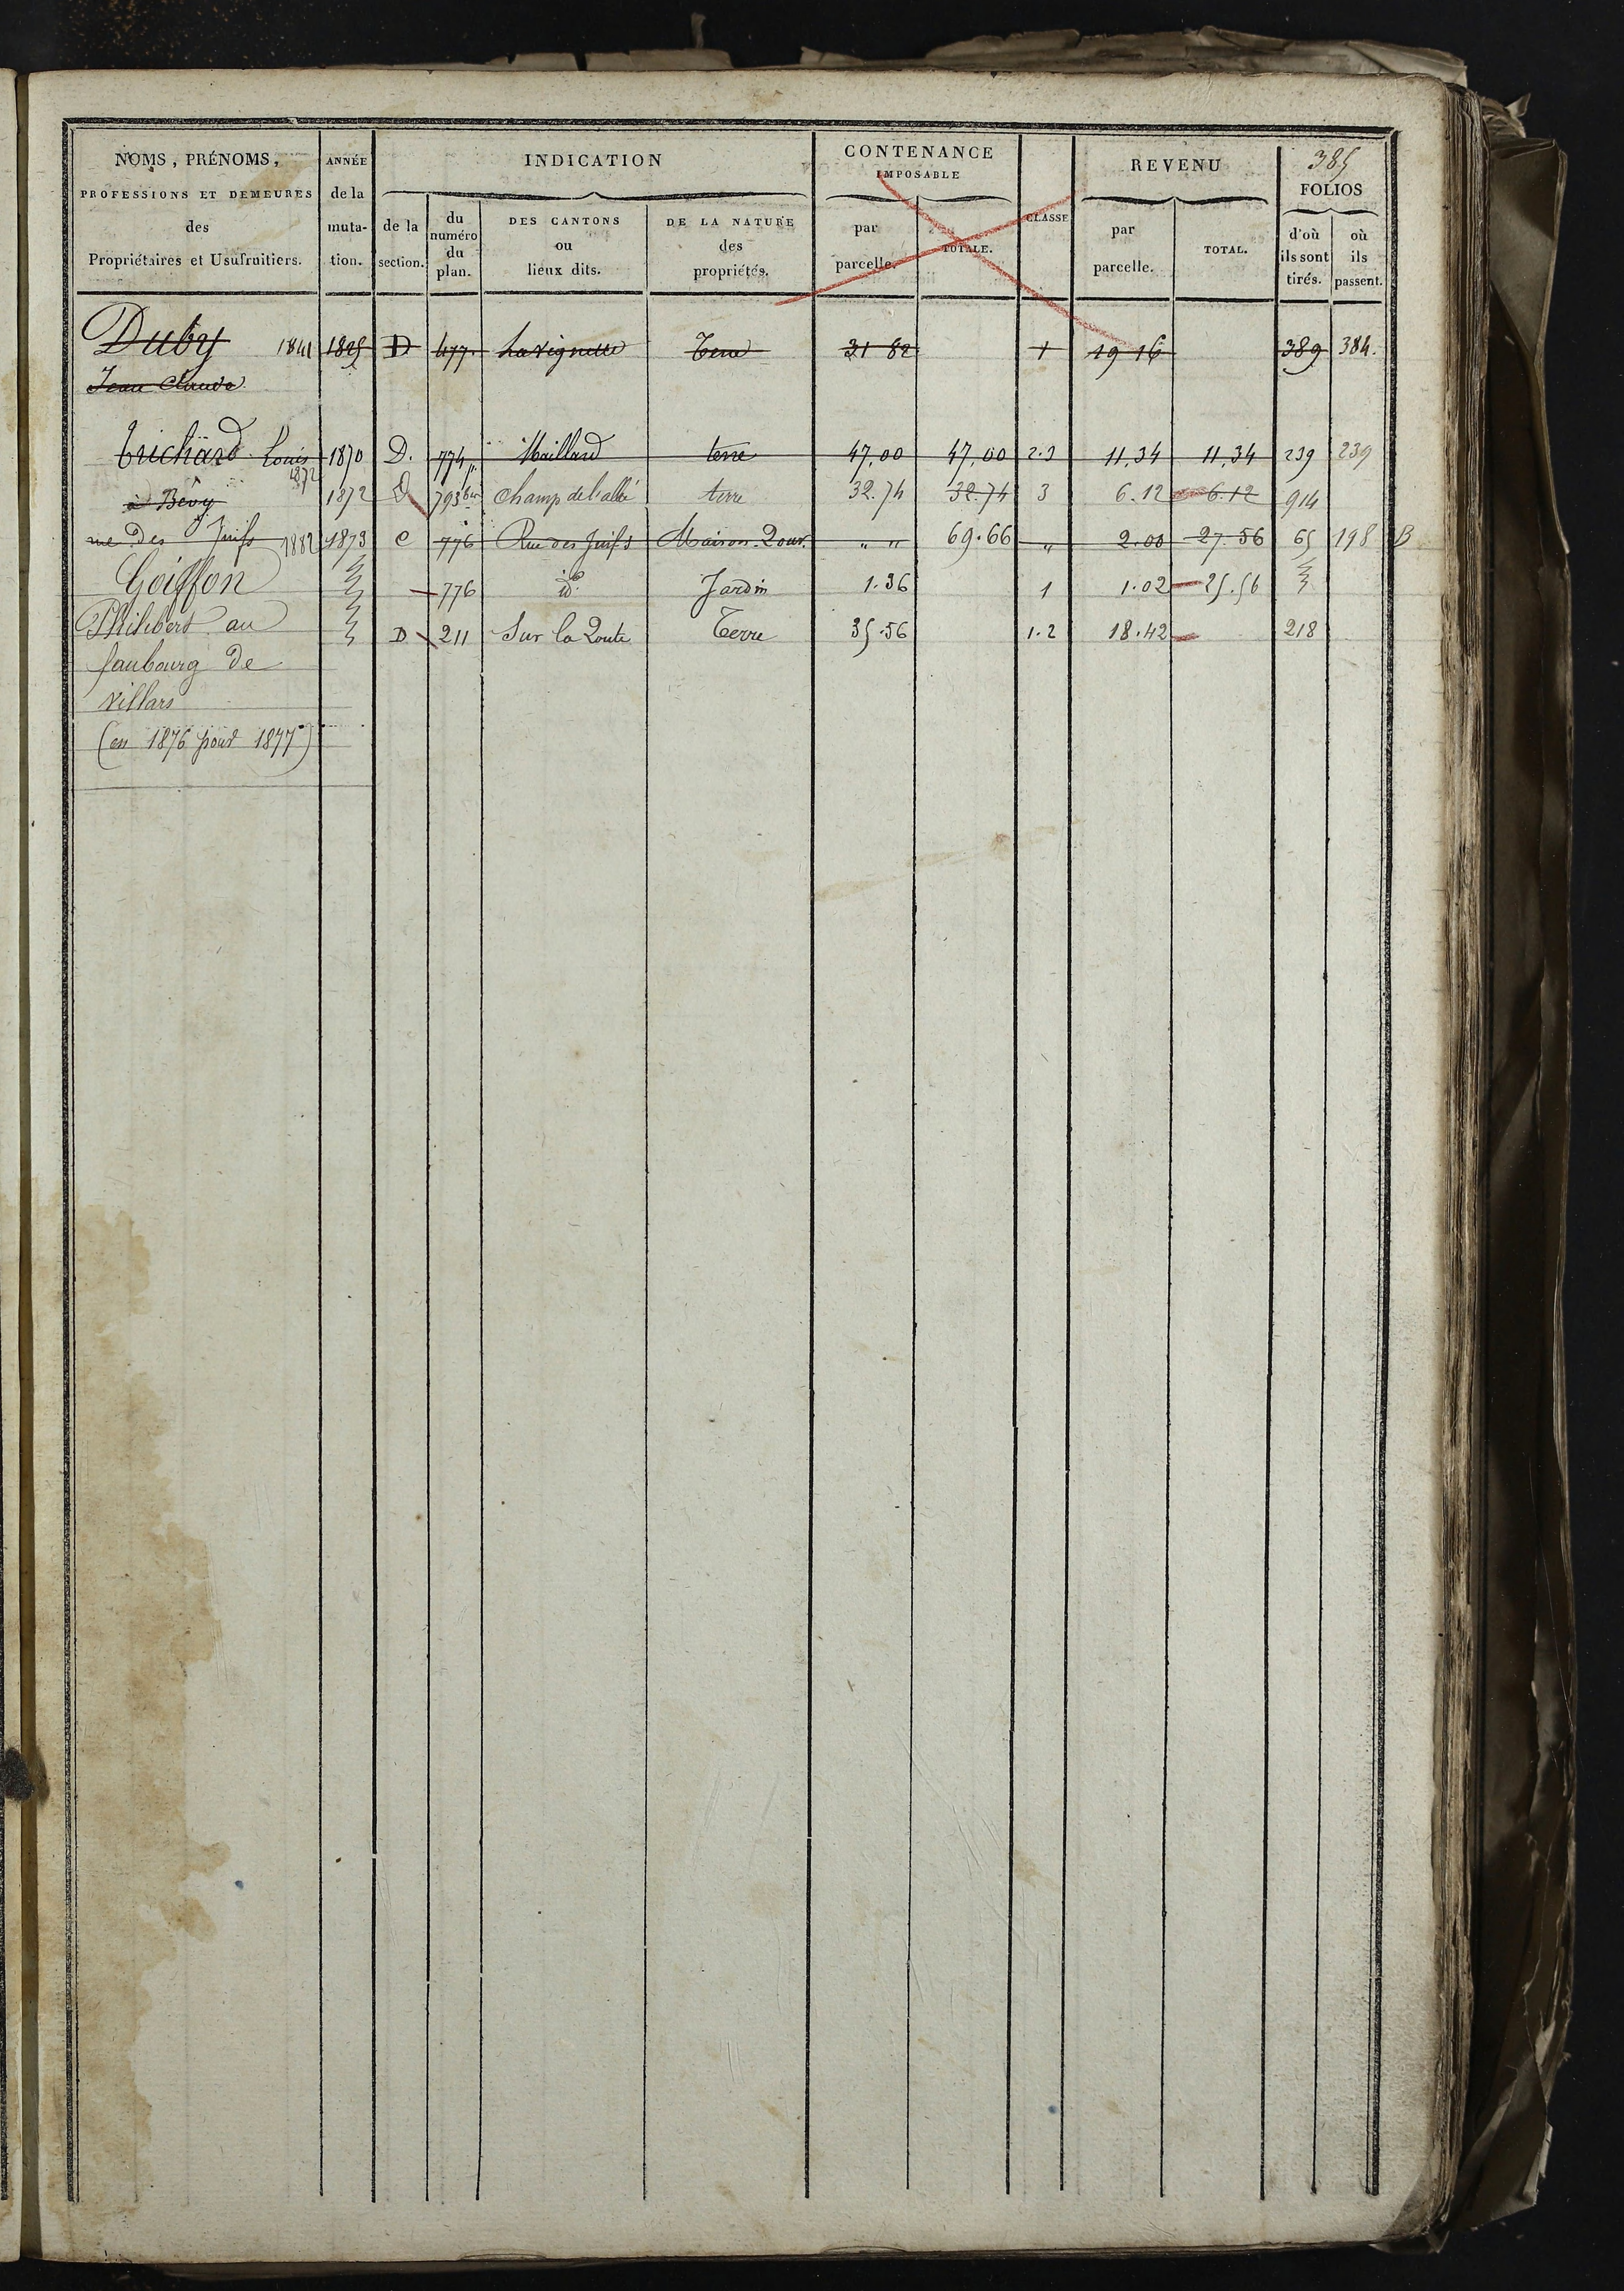 385
NOMS, PRÉNOMS, PROFESSIONS ET DEMEURES des Propriétaires et Usufruitiers.
ANNÉE de la muta-tion.
INDICATION
de la section.
du numéro du plan.
DES CANTONS ou lieux dits.
DE LA NATURE des propriétés.
CONTENANCE IMPOSABLE
par parcelle.
TOTALE.
CLASSE
REVENU
par parcelle.
TOTAL.
FOLIOS
d'où ils sont tirés.
où ils passent.
Duby 1841 1825 D 477. Lavignette Terre 31 82 1 19 16 389 384.
Jean Claude
Trichard Louis 1870 D. 774 p. Maillard terre 47,00 47,00 2.3 11,34 11,34 239 239
1872
à Bévy 1872 D 793 bis champ de l'allée terre 32.74 32.74 3 6.12 6.12 914
rue des Juifs 1882 1873 C 776 Rue des Juifs Maison. " " 69.66 " 2.00 27.56 65 198 B
Goiffon 776 id. Jardin 1.36 1 1.02 25.56
Philibert au D 211 Sur la Route Terre 35.56 1.2 18.42 218
faubourg de
villars
(en 1876 pour 1877)